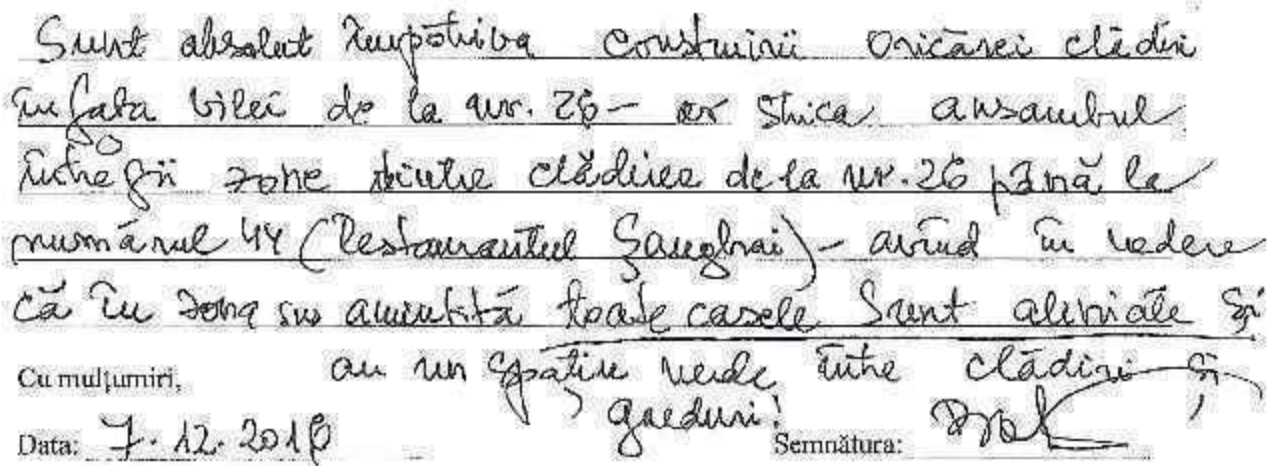 Sunt absolut împotriva construirii oricărei clădiri
în fața vilei de la nr. 26 – ar strica ansamblul
întregii zone dintre clădirea de la nr. 26 până la
numărul 44 (Restaurantul Șanghai) – avînd în vedere
că în zona sus amintită toate casele sunt aliniate și
au un spațiu verde între clădiri și
garduri!
Cu mulțumiri,
Data: 7.12.2018
Semnătura: